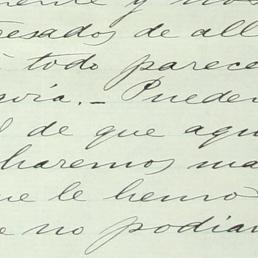 mente y nos
resados de all
todo parece
via. - Pueden
de que aqu
haremos ma
ue le hemo
e no podian